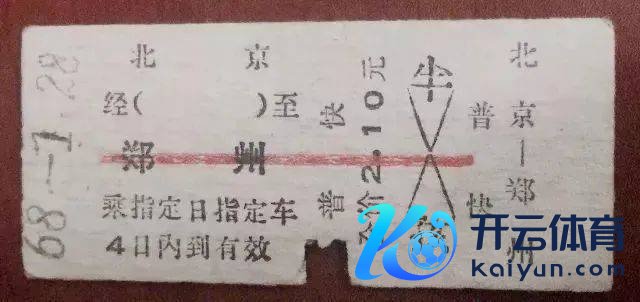 68-1.28
北京
经( )至
郑州
乘指定日指定车
4日内到有效
普快
全价2.10元
普快
北京—郑州
开云体育
kaiyun.com